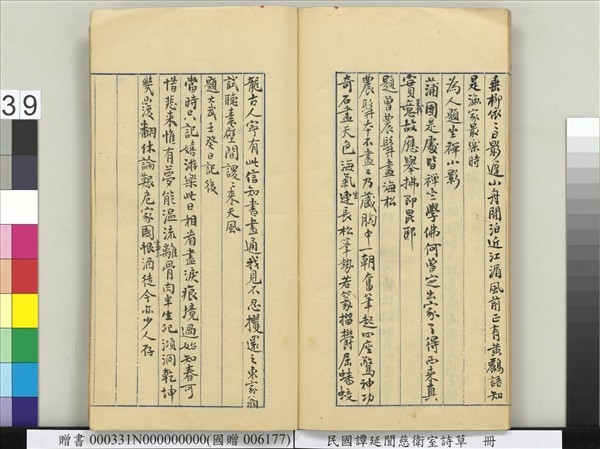 垂柳依々日影遲小舟閒泊近江湄風前正有黃鸝語知
是漁家最樂時
為人題坐禪小影
蒲團是處皆禪坐學佛何嘗定出家了得西來真
實義意故應舉拂即毘耶
題曾農髯畫海松
農髯本不畫畫乃藏胸中一朝奮筆起四座驚神功
奇石盡天色海氣生連長松筆勢若篆籀鬱屈蟠蛟
龍古人寧有此信知書畫通我見不忍攫還之東家翁
試聽素壁間謖謖來天風
題大武壬癸日記後
當時日日記嬉游樂此日相看盡淚痕境過始知春可
惜悲來惟有夢能溫流離骨肉半生死澒洞乾坤
幾覆翻休論艱危家國事恨酒徒今亦少人存
39
贈書 000331N000000000(國贈 006177)
民國譚延闓慈衛室詩草 冊